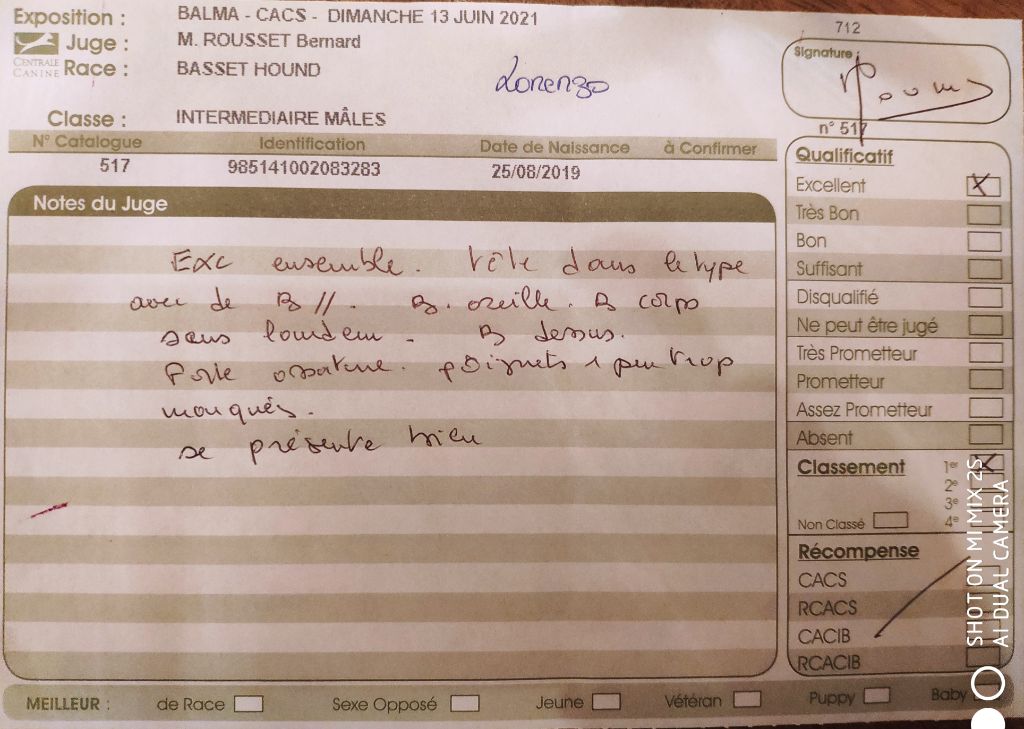 Exposition : BALMA - CACS - DIMANCHE 13 JUIN 2021
712
Juge : M. ROUSSET Bernard
CENTRALE CANINE
Race : BASSET HOUND
Lorenzo
Signature
Classe : INTERMEDIAIRE MÂLES
n° 517
N° Catalogue Identification Date de Naissance à Confirmer
517 985141002083283 25/08/2019
Notes du Juge
Exc ensemble. tête dans le type
avec de B //. B. oreille. B corps
sans lourdeur. B dessus.
Forte ossature. poignets 1 peu trop
marqués.
se présente bien
Qualificatif
Excellent X
Très Bon
Bon
Suffisant
Disqualifié
Ne peut être jugé
Très Prometteur
Prometteur
Assez Prometteur
Absent
Classement 1er X
2e
3e
Non Classé 4e
Récompense
CACS
RCACS
CACIB
RCACIB
MEILLEUR : de Race Sexe Opposé Jeune Vétéran Puppy Baby
SHOT ON MI MIX 2S
AI DUAL CAMERA